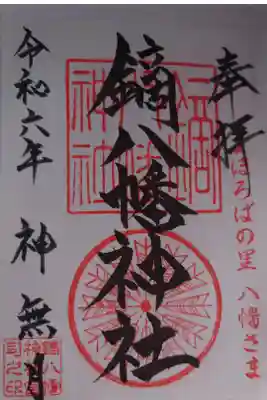 奉拝
まほろばの里 八幡さま
鏑八幡神社
令和六年 神無月